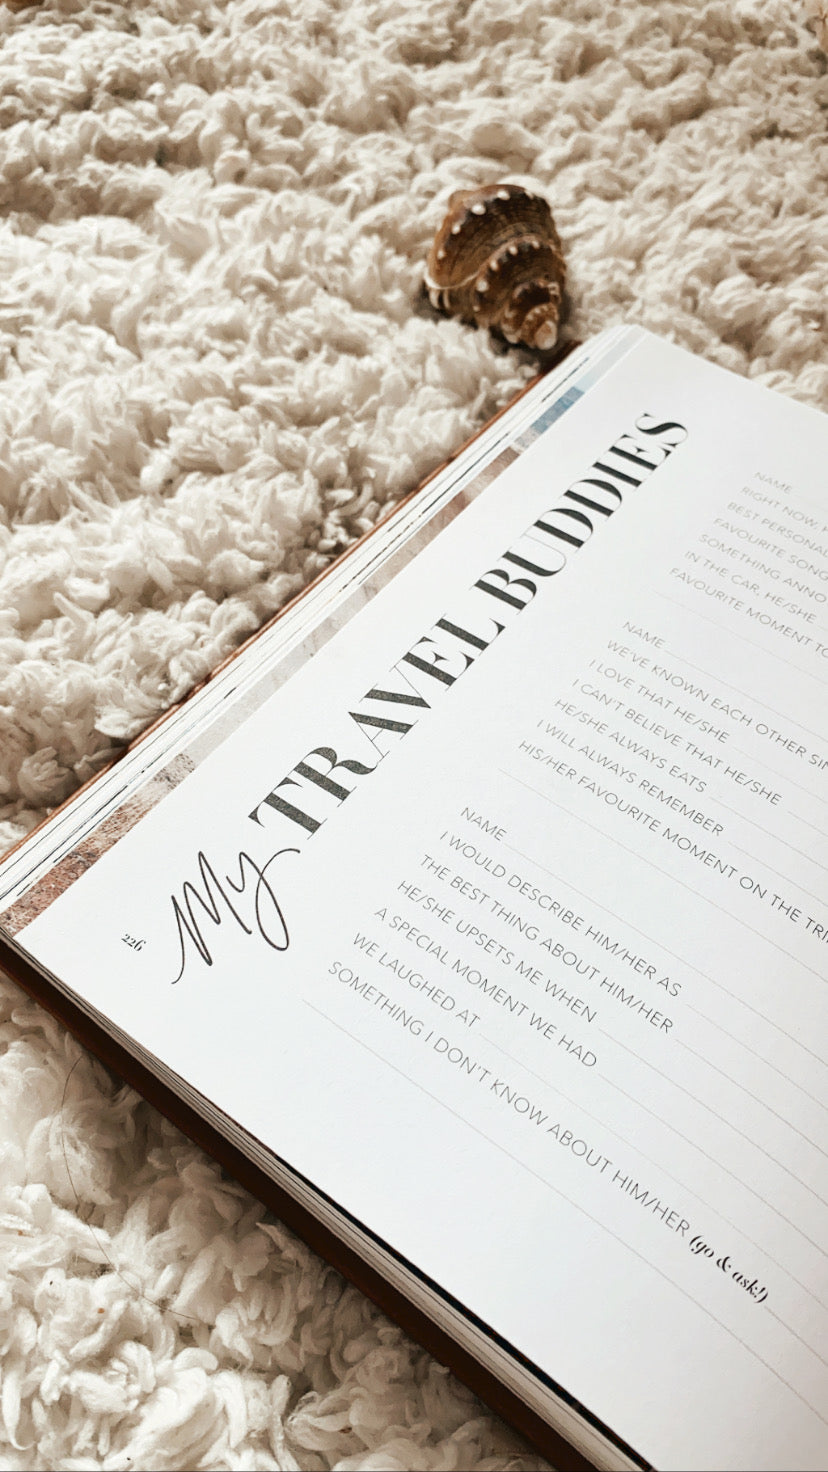 My TRAVEL BUDDIES
NAME
RIGHT NOW,
BEST
FAVOURITE SONG
SOMETHING
IN THE CAR, HE/SHE
FAVOURITE MOMENT
NAME
WE'VE KNOWN EACH OTHER
I LOVE THAT HE/SHE
I CAN'T BELIEVE THAT HE/SHE
HE/SHE ALWAYS EATS
I WILL ALWAYS REMEMBER
HIS/HER FAVOURITE MOMENT ON THE
NAME
I WOULD DESCRIBE HIM/HER AS
THE BEST THING ABOUT HIM/HER
HE/SHE UPSETS ME WHEN
A SPECIAL MOMENT WE HAD
WE LAUGHED AT
SOMETHING I DON'T KNOW ABOUT HIM/HER (go & ask!)
226